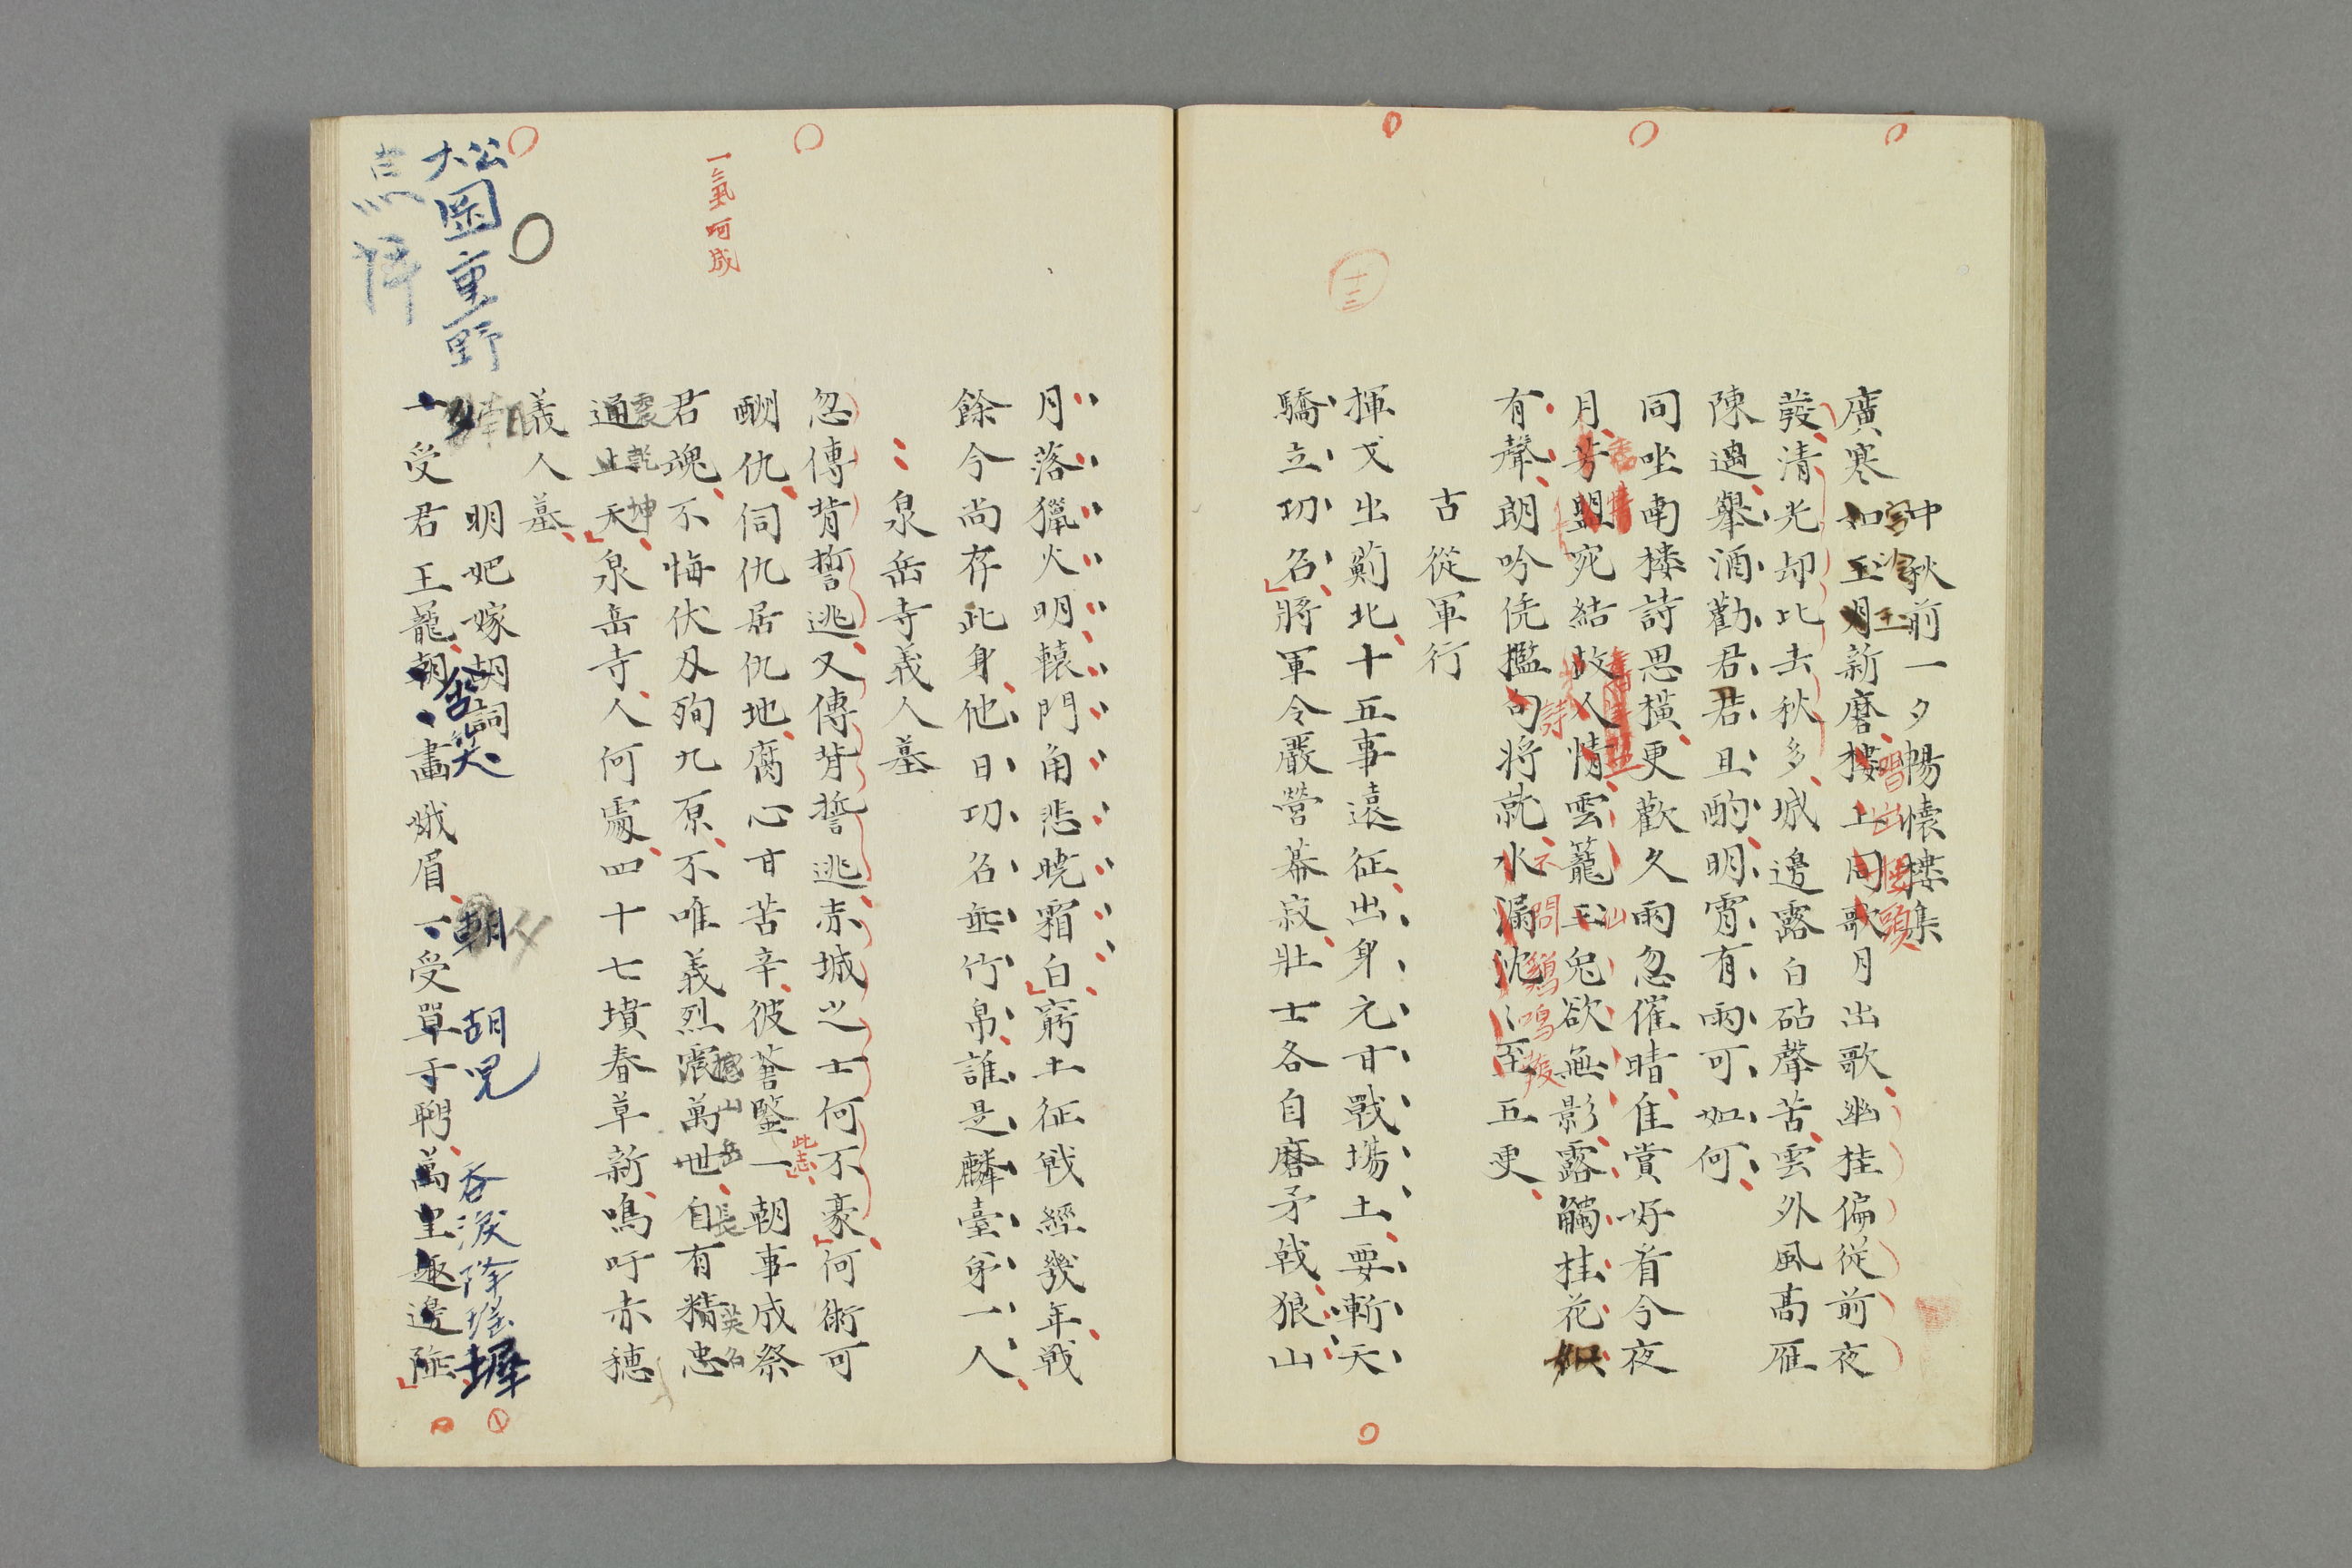 中秋前一夕暢懷樓集
廣寒如玉月新磨樓上同歌月出歌幽桂偏從前夜
宮冷
皓出牆頭
發清光却比去秋多城邊露白砧聲苦雲外風高雁
陳過舉酒勸君君且酌明霄有雨可如何
同坐南樓詩思橫更歡久雨忽催晴隹賞好看今夜
月芳盟宛結故人情雲籠玉兔欲無影露觸桂花
有聲朗吟凭檻句將就水漏沈〻至五更
詩 不問鷄鳴後
古從軍行
揮戈出薊北十五事遠征出身元甘戰場土要斬天
驕立功名將軍令嚴營幕寂壯士各自磨矛戟狼山
十三
月落獵火明轅門角悲曉霜白窮土征戰經幾年戰
餘今尚存此身他日功名垂竹帛誰是麟臺第一人
泉岳寺義人墓
忽傳背誓逃又傳背誓逃赤城之士何不豪何術可
一氣呵成
酬仇伺仇居仇地腐心甘苦辛彼蒼鑒一朝事成祭
此志
君魂不悔伏刄殉九原不唯義烈震萬世自有精忠
撼山岳 長 英名
通上天泉岳寺人何處四十七墳春草新鳴吁赤穗
震乾坤
義人墓
明妃嫁胡詞
一受君王寵朝〻畫娥眉一受單于聘萬里趣邊陲
含笑 朝 胡児 呑淚降瑤墀
公
大岡重野